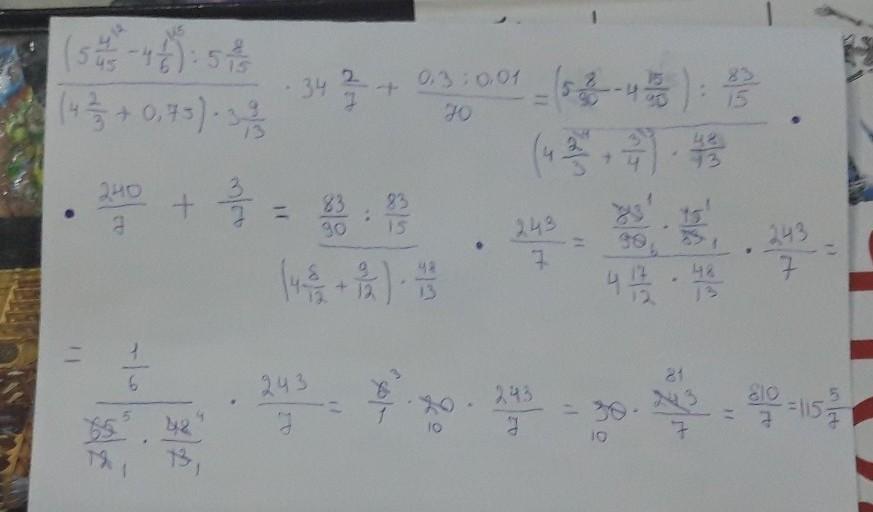 (5 4/45 - 4 1/6) : 5 8/15 / (4 2/3 + 0,75) · 3 9/13 · 34 2/7 + 0,3 : 0,01 / 70 = (5 8/90 - 4 15/90) : 83/15 / (4 2/3 + 3/4) · 48/13 ·
· 240/7 + 3/7 = 83/90 : 83/15 / (4 8/12 + 9/12) · 48/13 · 243/7 = 83/90 · 15/83 / 4 17/12 · 48/13 · 243/7 =
= 1/6 / 65/12 · 48/13 · 243/7 = 6/1 · 20 · 243/7 = 30 · 243/7 = 810/7 = 115 5/7